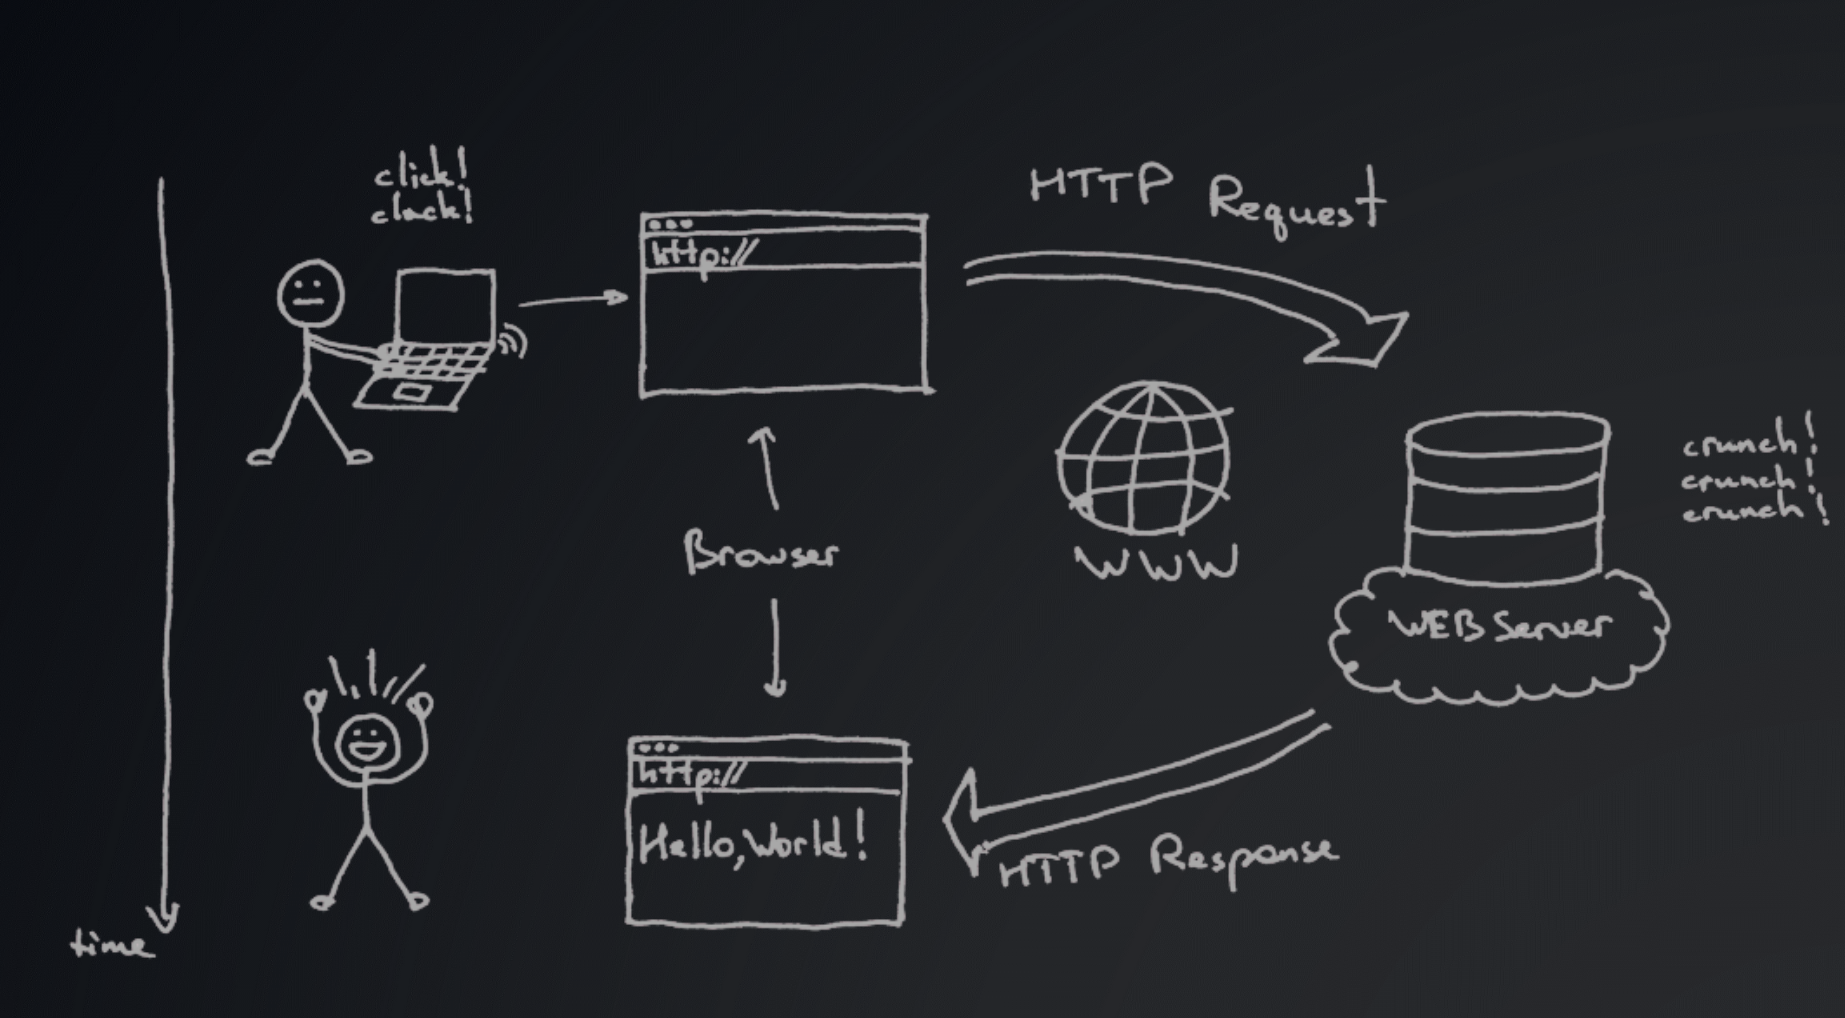 click!
clack!
http://
HTTP Request
Browser
WWW
crunch!
crunch!
crunch!
WEB Server
http://
Hello, World!
HTTP Response
time